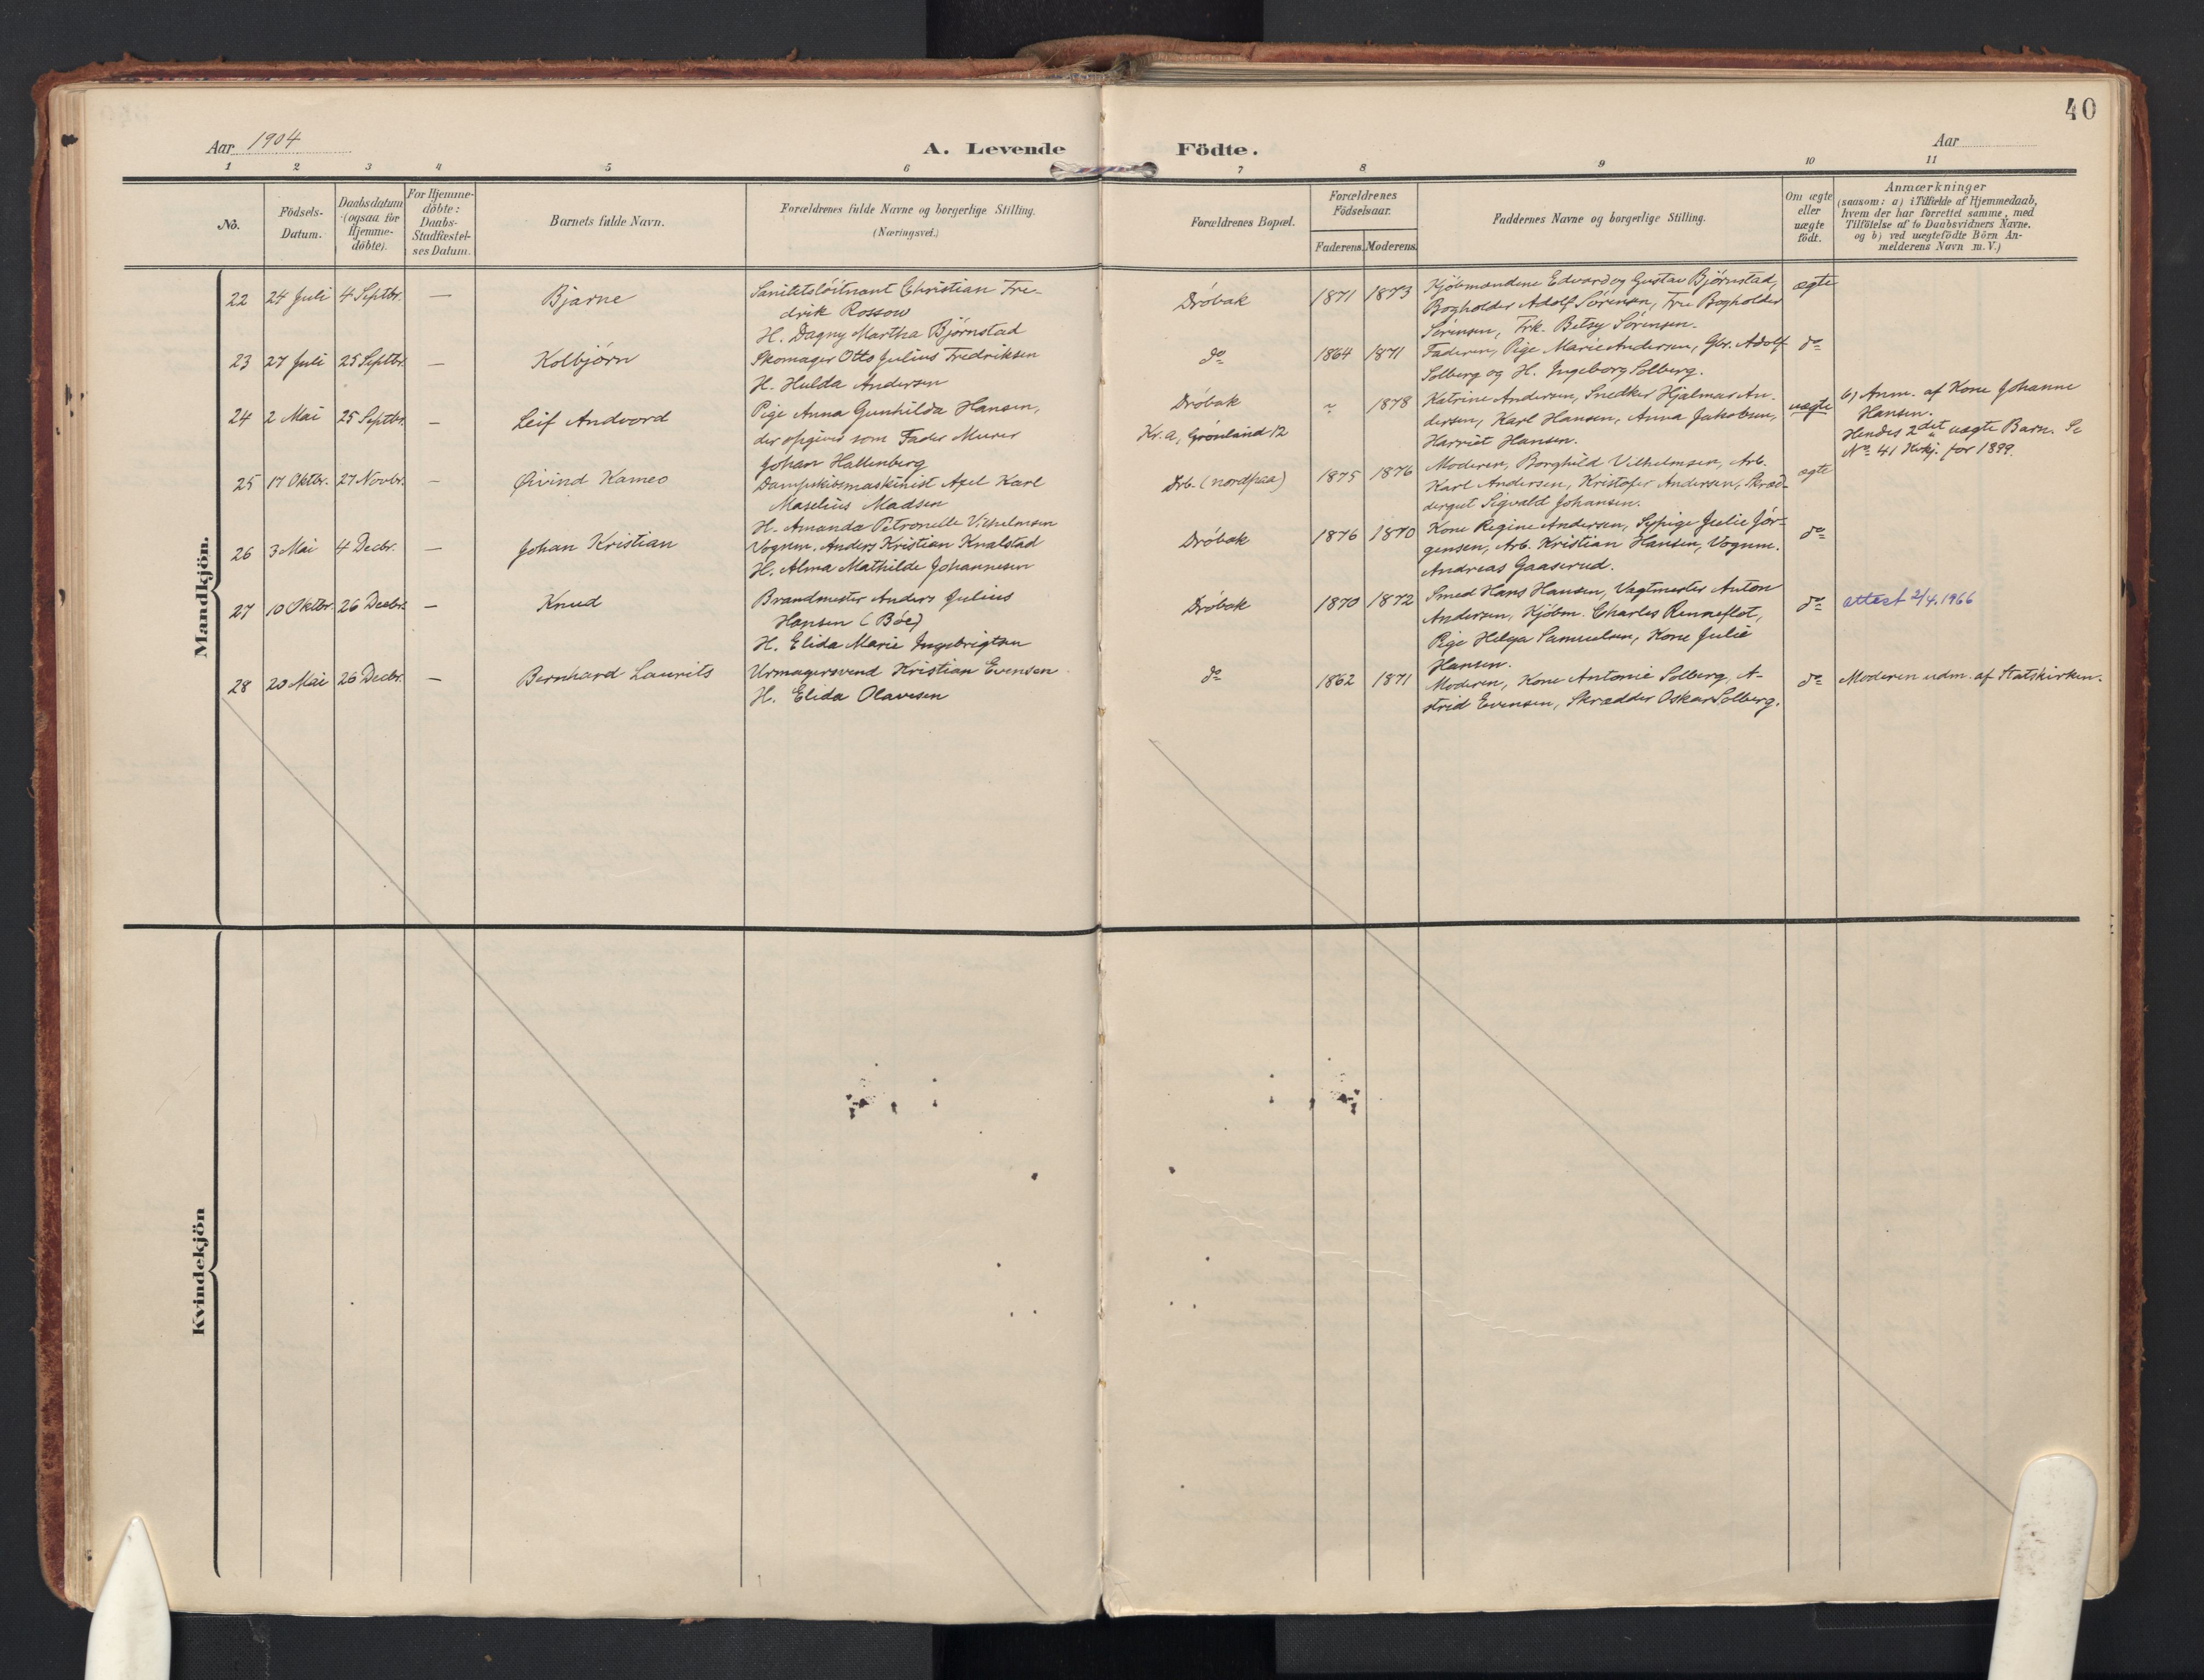 40
Aar 1904
A. Levende Födte.
Aar
1 2 3 4 5 6 7 8 9 10 11
No.
Födsels-
Datum.
Daabsdatum
(ogsaa for
Hjemme-
döbte).
For Hjemme-
döbte:
Daabs-
Stadfæstel-
ses Datum.
Barnets fulde Navn.
Forældrenes fulde Navne og borgerlige Stilling.
(Næringsvei.)
Forældrenes Bopæl.
Forældrenes
Födselsaar.
Faderens. Moderens.
Faddernes Navne og borgerlige Stilling.
Om ægte
eller
uægte
födt.
Anmærkninger
(saasom: a) i Tilfælde af Hjemmedaab,
hvem der har forrettet samme, med
Tilföielse af to Daabsvidners Navne.
og b) ved uægtefödte Börn An-
melderens Navn m. V.)
Mandkjön.
22 24 Juli 4 Septbr. — Bjarne
Sanitetslöitnant Christian Fre-
drik Rossow
H. Dagny Martha Björnstad
Dröbak
1871 1873
Kjöbmændene Edvard og Gustav Bjørnstad,
Bogholder Adolf Sörensen, Fru Bogholder
Sörensen, Frk. Betsy Sörensen.
ægte
23 27 Juli 25 Septbr. — Kolbjörn
Skomager Otto Julius Fredriksen
H. Hulda Andersen
do
1864 1871
Faderen, Pige Marie Andersen, Gbr. Adolf
Solberg og H. Ingeborg Solberg.
do
24 2 Mai 25 Septbr. — Leif Andvord
Pige Anna Gunhilda Hansen,
der opgiver som Fader Murer
Johan Hallenberg
Dröbak
Kr.a, Grönland 12
~ 1878
Katrine Andersen, Snedker Hjalmar An-
dersen, Karl Hansen, Anna Jakobsen,
Harriet Hansen.
uægte
b) Anm. af Kone Johanne
Hansen.
Hendes 2det uægte Barn. Se
No 41 Kirkj. for 1899.
25 17 Oktbr. 27 Novbr. — Øivind Kameo
Dampskibsmaskinist Axel Karl
Maselius Madsen
H. Amanda Petronelle Vilhelmsen
Drb. (nordpaa)
1875 1876
Moderen, Borghild Vilhelmsen, Arb.
Karl Andersen, Kristofer Andersen, Skræd-
dergut Sigvald Johansen.
ægte
26 3 Mai 4 Decbr. — Johan Kristian
Vognm. Anders Kristian Knalstad
H. Alma Mathilde Johannesen
Dröbak
1876 1870
Kone Regine Andersen, Sypige Julie Jör-
gensen, Arb. Kristian Hansen, Vognm.
Andreas Gaaserud.
do
27 10 Oktbr. 26 Decbr. — Knud
Brandmester Anders Julius
Hansen (Böe)
H. Elida Marie Ingebrigtsen
Dröbak
1870 1872
Smed Hans Hansen, Vagtmester Anton
Andersen, Kjöbm. Charles Renneflot,
Pige Helga Samuelsen, Kone Julie
Hansen.
do
attest 2/4.1966
28 20 Mai 26 Decbr. — Bernhard Laurits
Urmagersvend Kristian Evensen
H. Elida Olavesen
do
1862 1871
Moderen, Kone Antonie Solberg, A-
strid Evensen, Skrædder Oskar Solberg.
do
Moderen udm. af Statskirken.
Kvindekjön